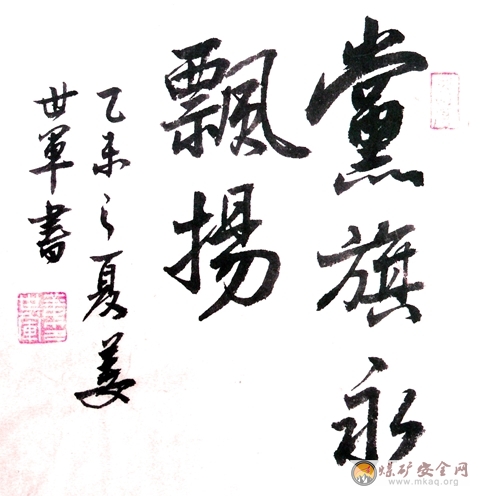 黨旗永
飄揚
乙未之夏姜
世軍書
煤矿安全网
www.mkaq.org